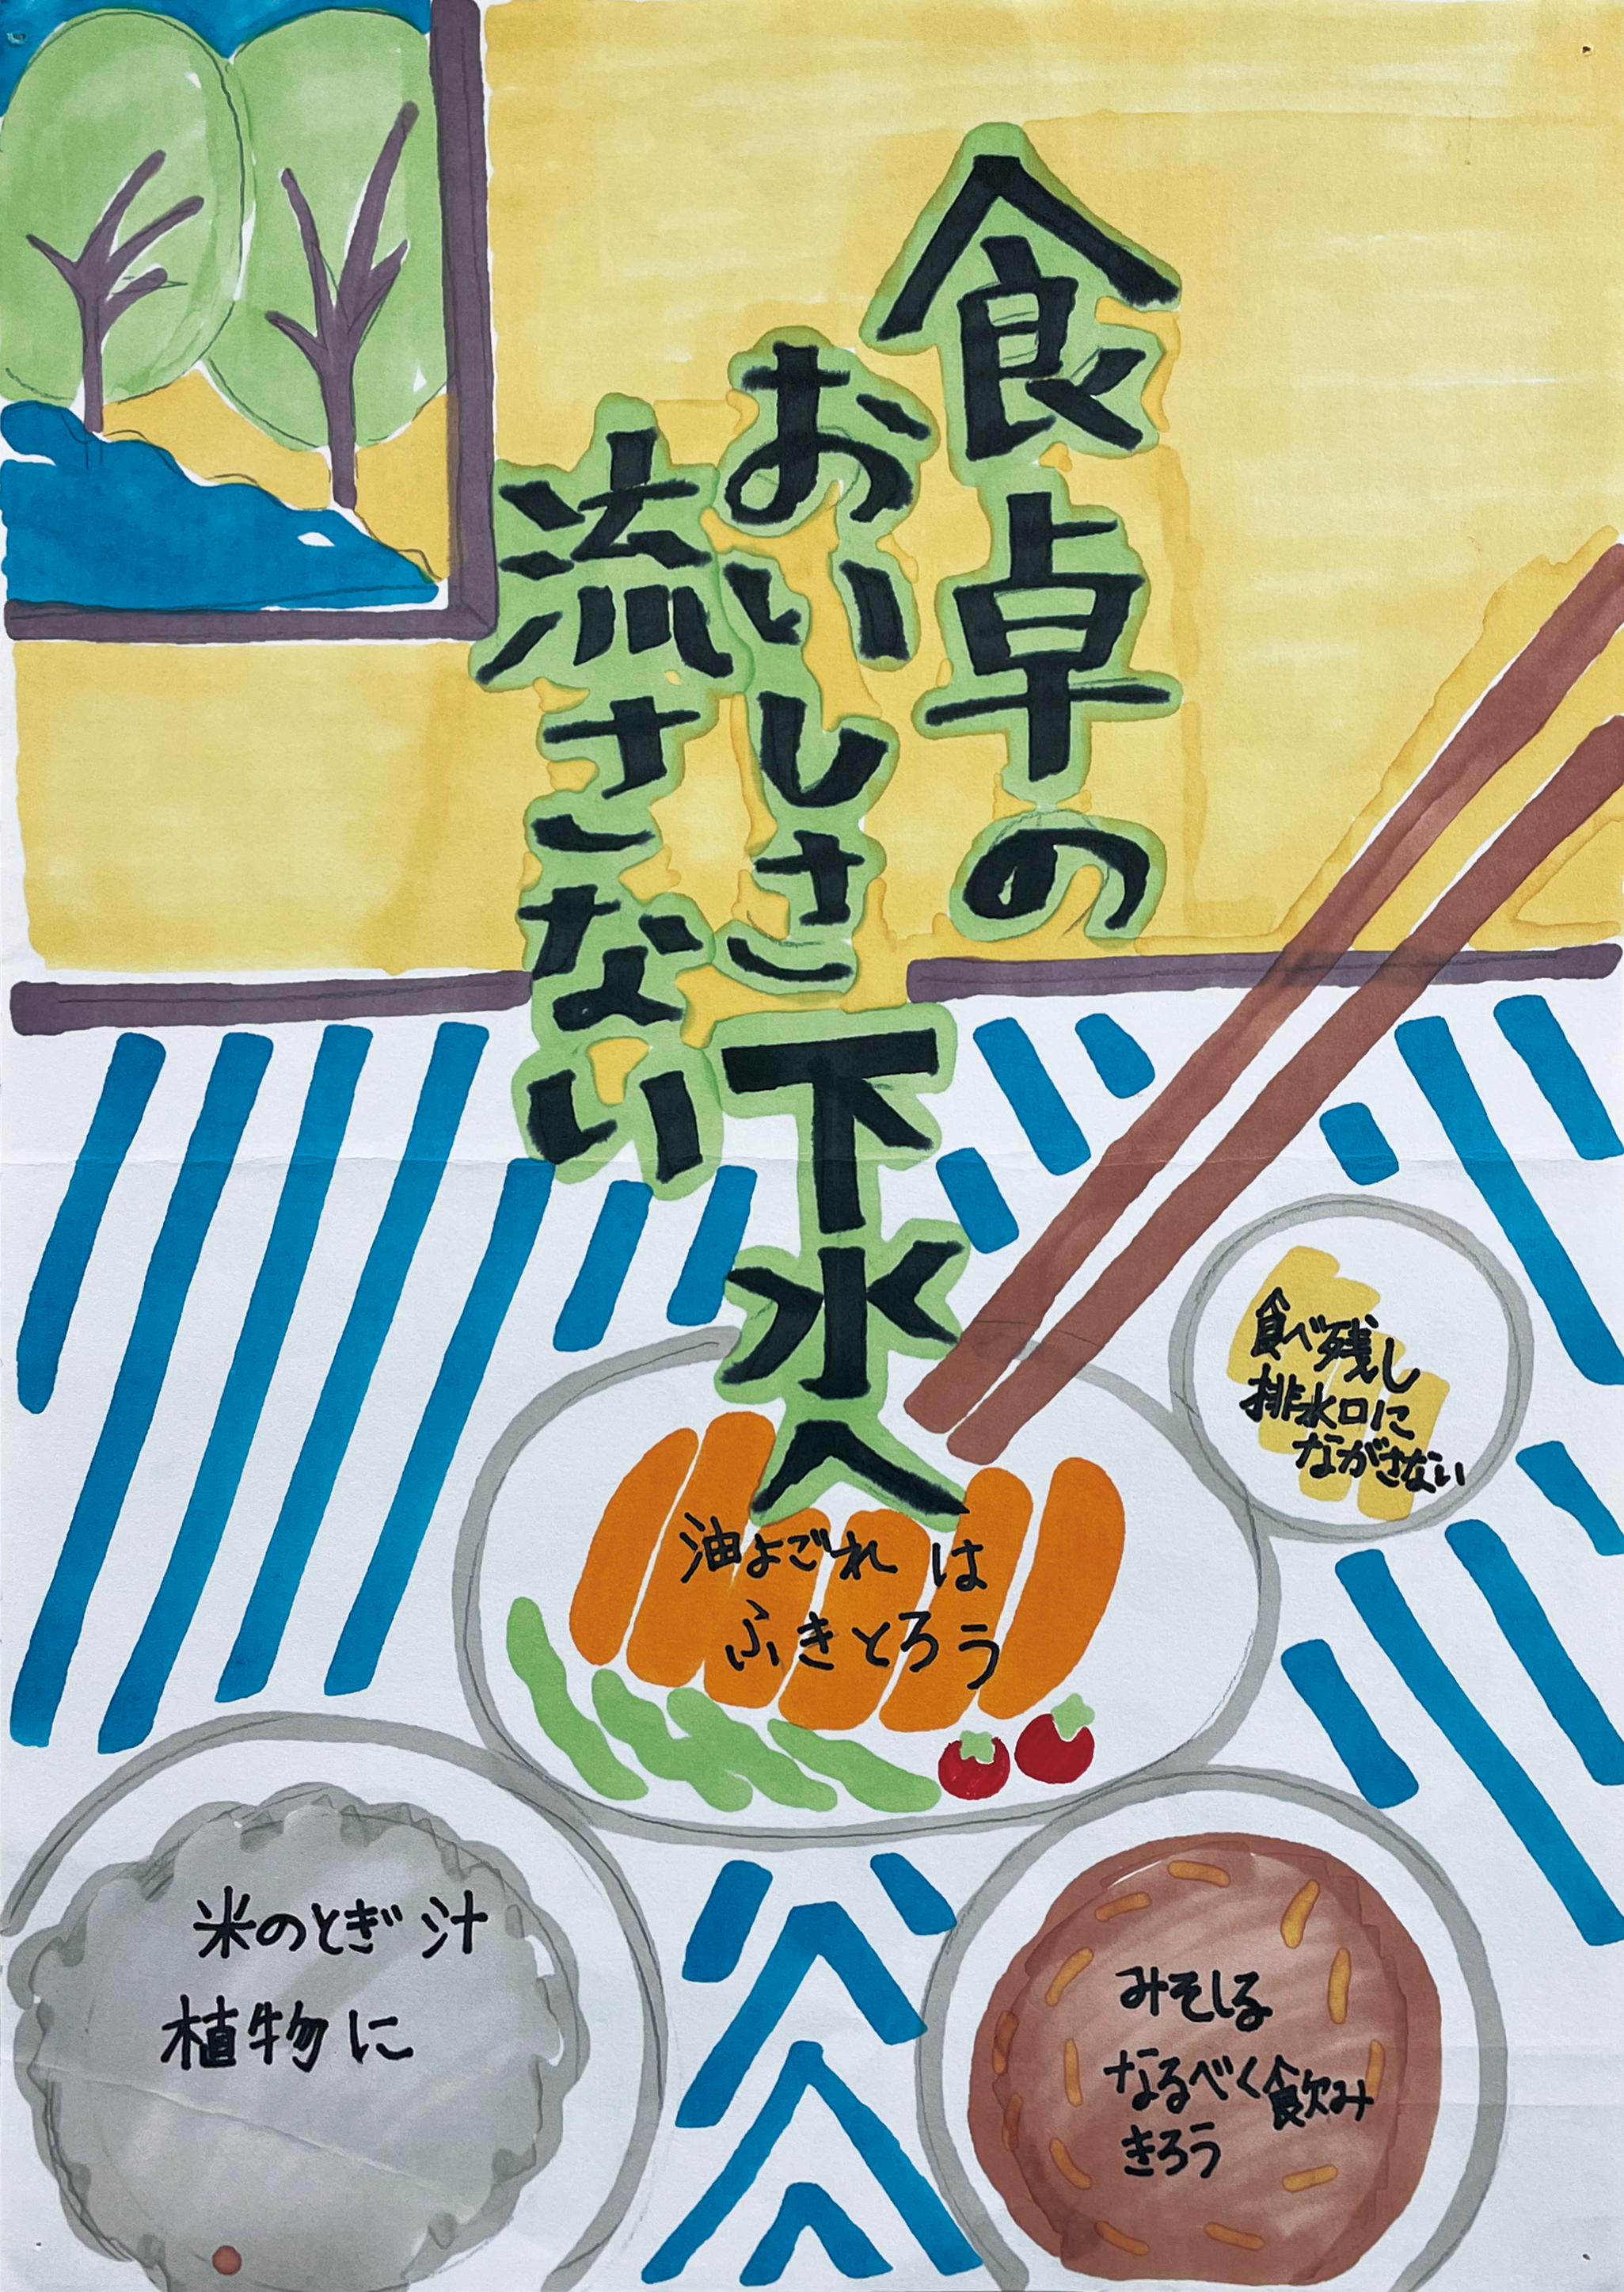 食卓の
おいしさ下水へ
流さない
食べ残し
排水口に
ながさない
油よごれは
ふきとろう
米のとぎ汁
植物に
みそしる
なるべく飲み
きろう